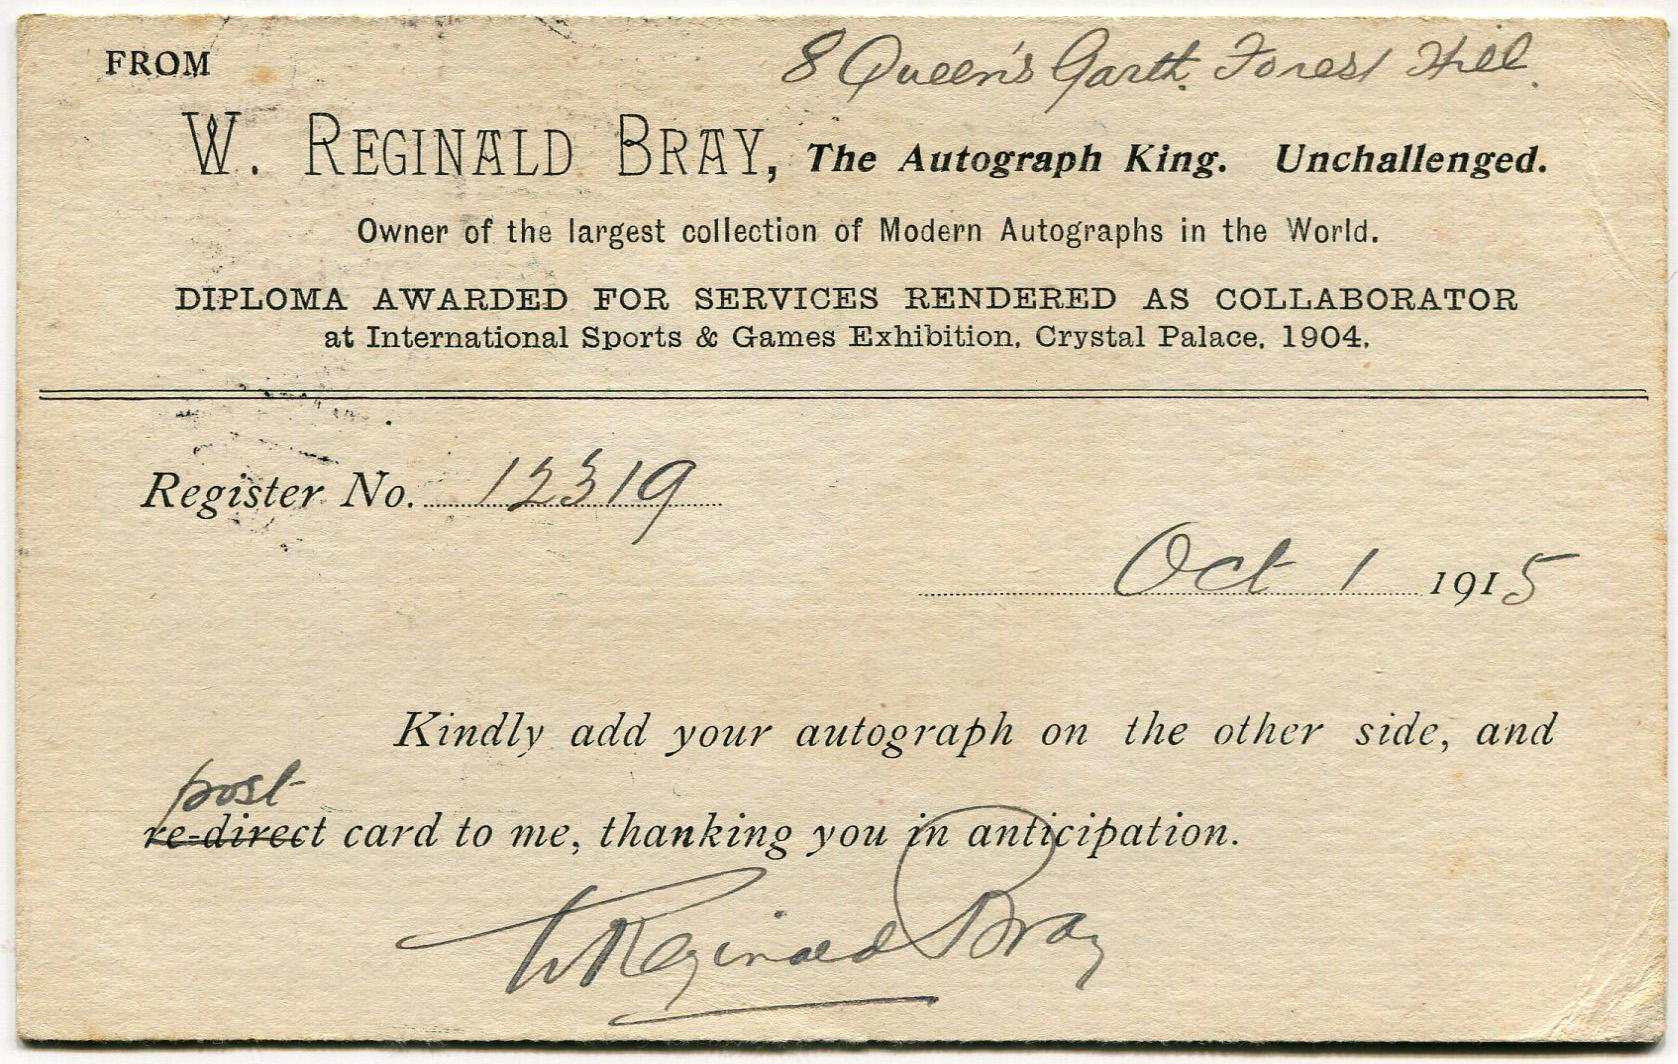 FROM
8 Queen's Garth. Forest Hill.
W. REGINALD BRAY, The Autograph King. Unchallenged.
Owner of the largest collection of Modern Autographs in the World.
DIPLOMA AWARDED FOR SERVICES RENDERED AS COLLABORATOR
at International Sports & Games Exhibition, Crystal Palace, 1904.
Register No. 12319
Oct 1 1915
Kindly add your autograph on the other side, and
post
re-direct card to me, thanking you in anticipation.
W Reginald Bray